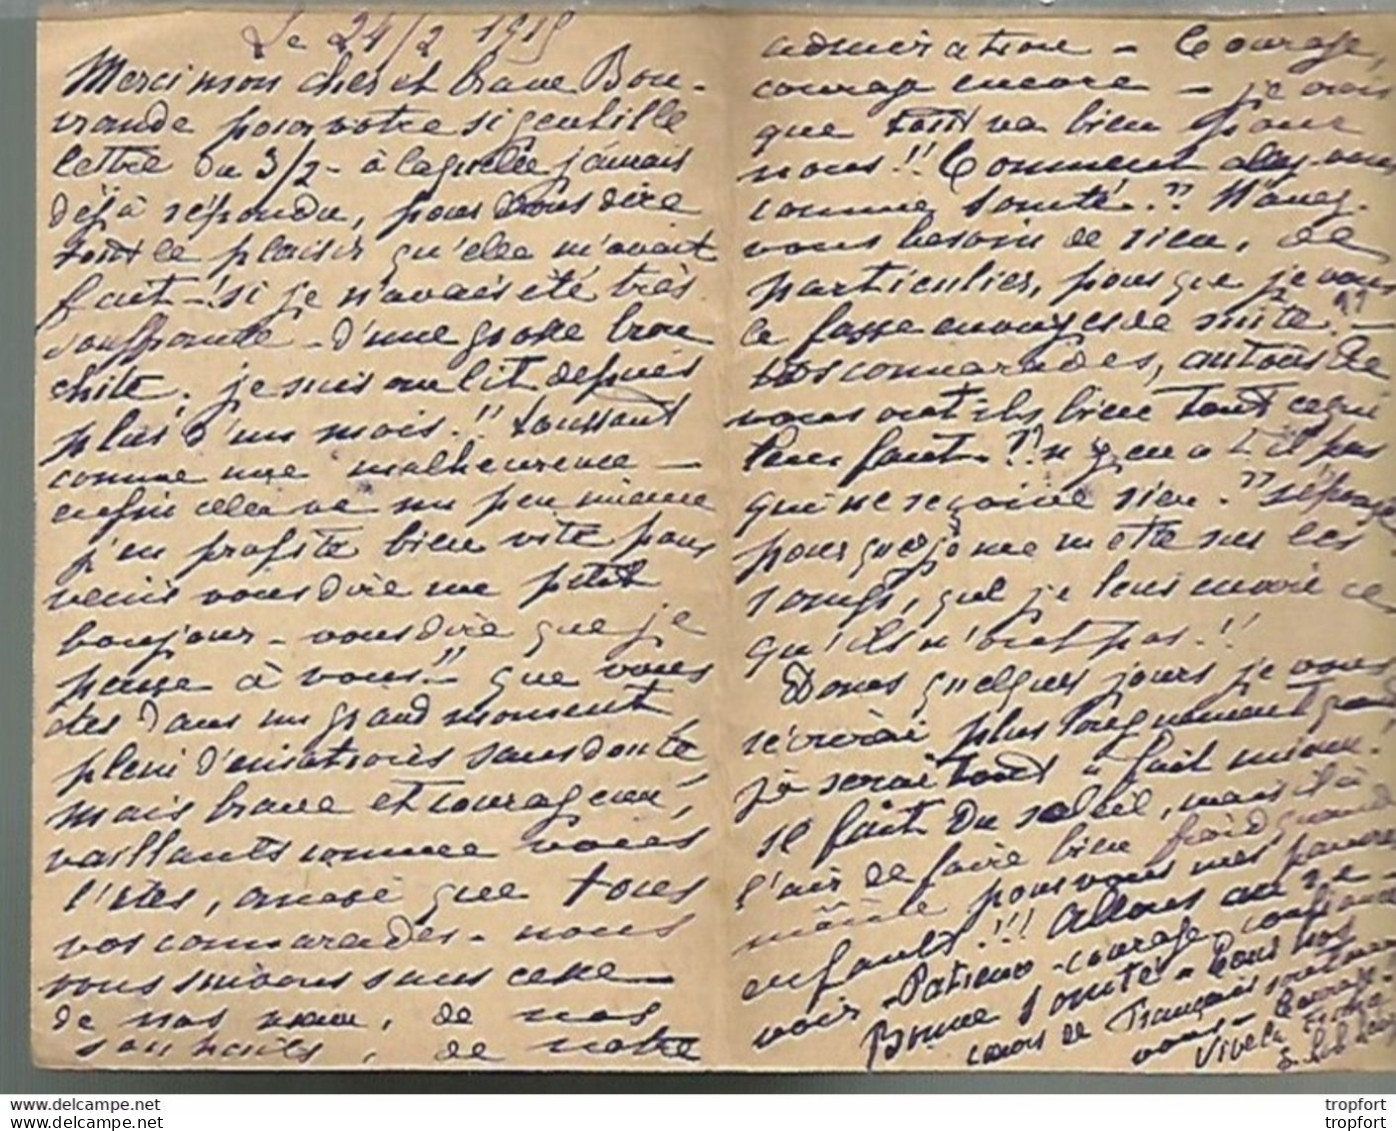 Le 24/2 1915
Merci mon cher et brave Bou-
vrande pour votre si gentille
lettre du 3/2 - à laquelle j'aurais
déjà répondu, pour vous dire
tout le plaisir qu'elle m'avait
fait - si je n'avais été très
souffrante - d'une grosse bron
chite. je suis au lit depuis
plus d'un mois !! toussant
comme une malheureuse -
enfin cela va un peu mieux
j'en profite bien vite pour
venir vous dire un petit
bonjour - vous dire que je
pense à vous !! que vous
êtes dans un grand moment
plein d'émotions sans doute
mais brave et courageux,
vaillants comme vous
l'êtes, ainsi que tous
vos camarades - nous
vous suivons sans cesse
de nos vœux, de nos
souhaits, de notre
admiration - Courage,
courage encore - je crois
que tout va bien pour
nous !! Comment allez-vous
comme santé ?? N'avez-
vous besoin de rien, de
particulier, pour que je vous
le fasse envoyer de suite ??
vos camarades, autour de
vous ont ils bien tout ce qui
leur faut ?? n'y en a t'il pas
qui ne reçoive rien ??
pour que je me mette sur les
rangs, que je leur envoie ce
qu'ils n'ont pas !!
Dans quelques jours je vous
écrirai plus longuement quand
je serai tout à fait mieux !
il fait du soleil, mais il a
l'air de faire bien froid quand
même pour vous mes pauvres
enfants !!! Allons au re-
voir - Patience - courage, confiance
Bonne santé - Tous nos
cœurs de Français
vous - Courage -
Vive la France